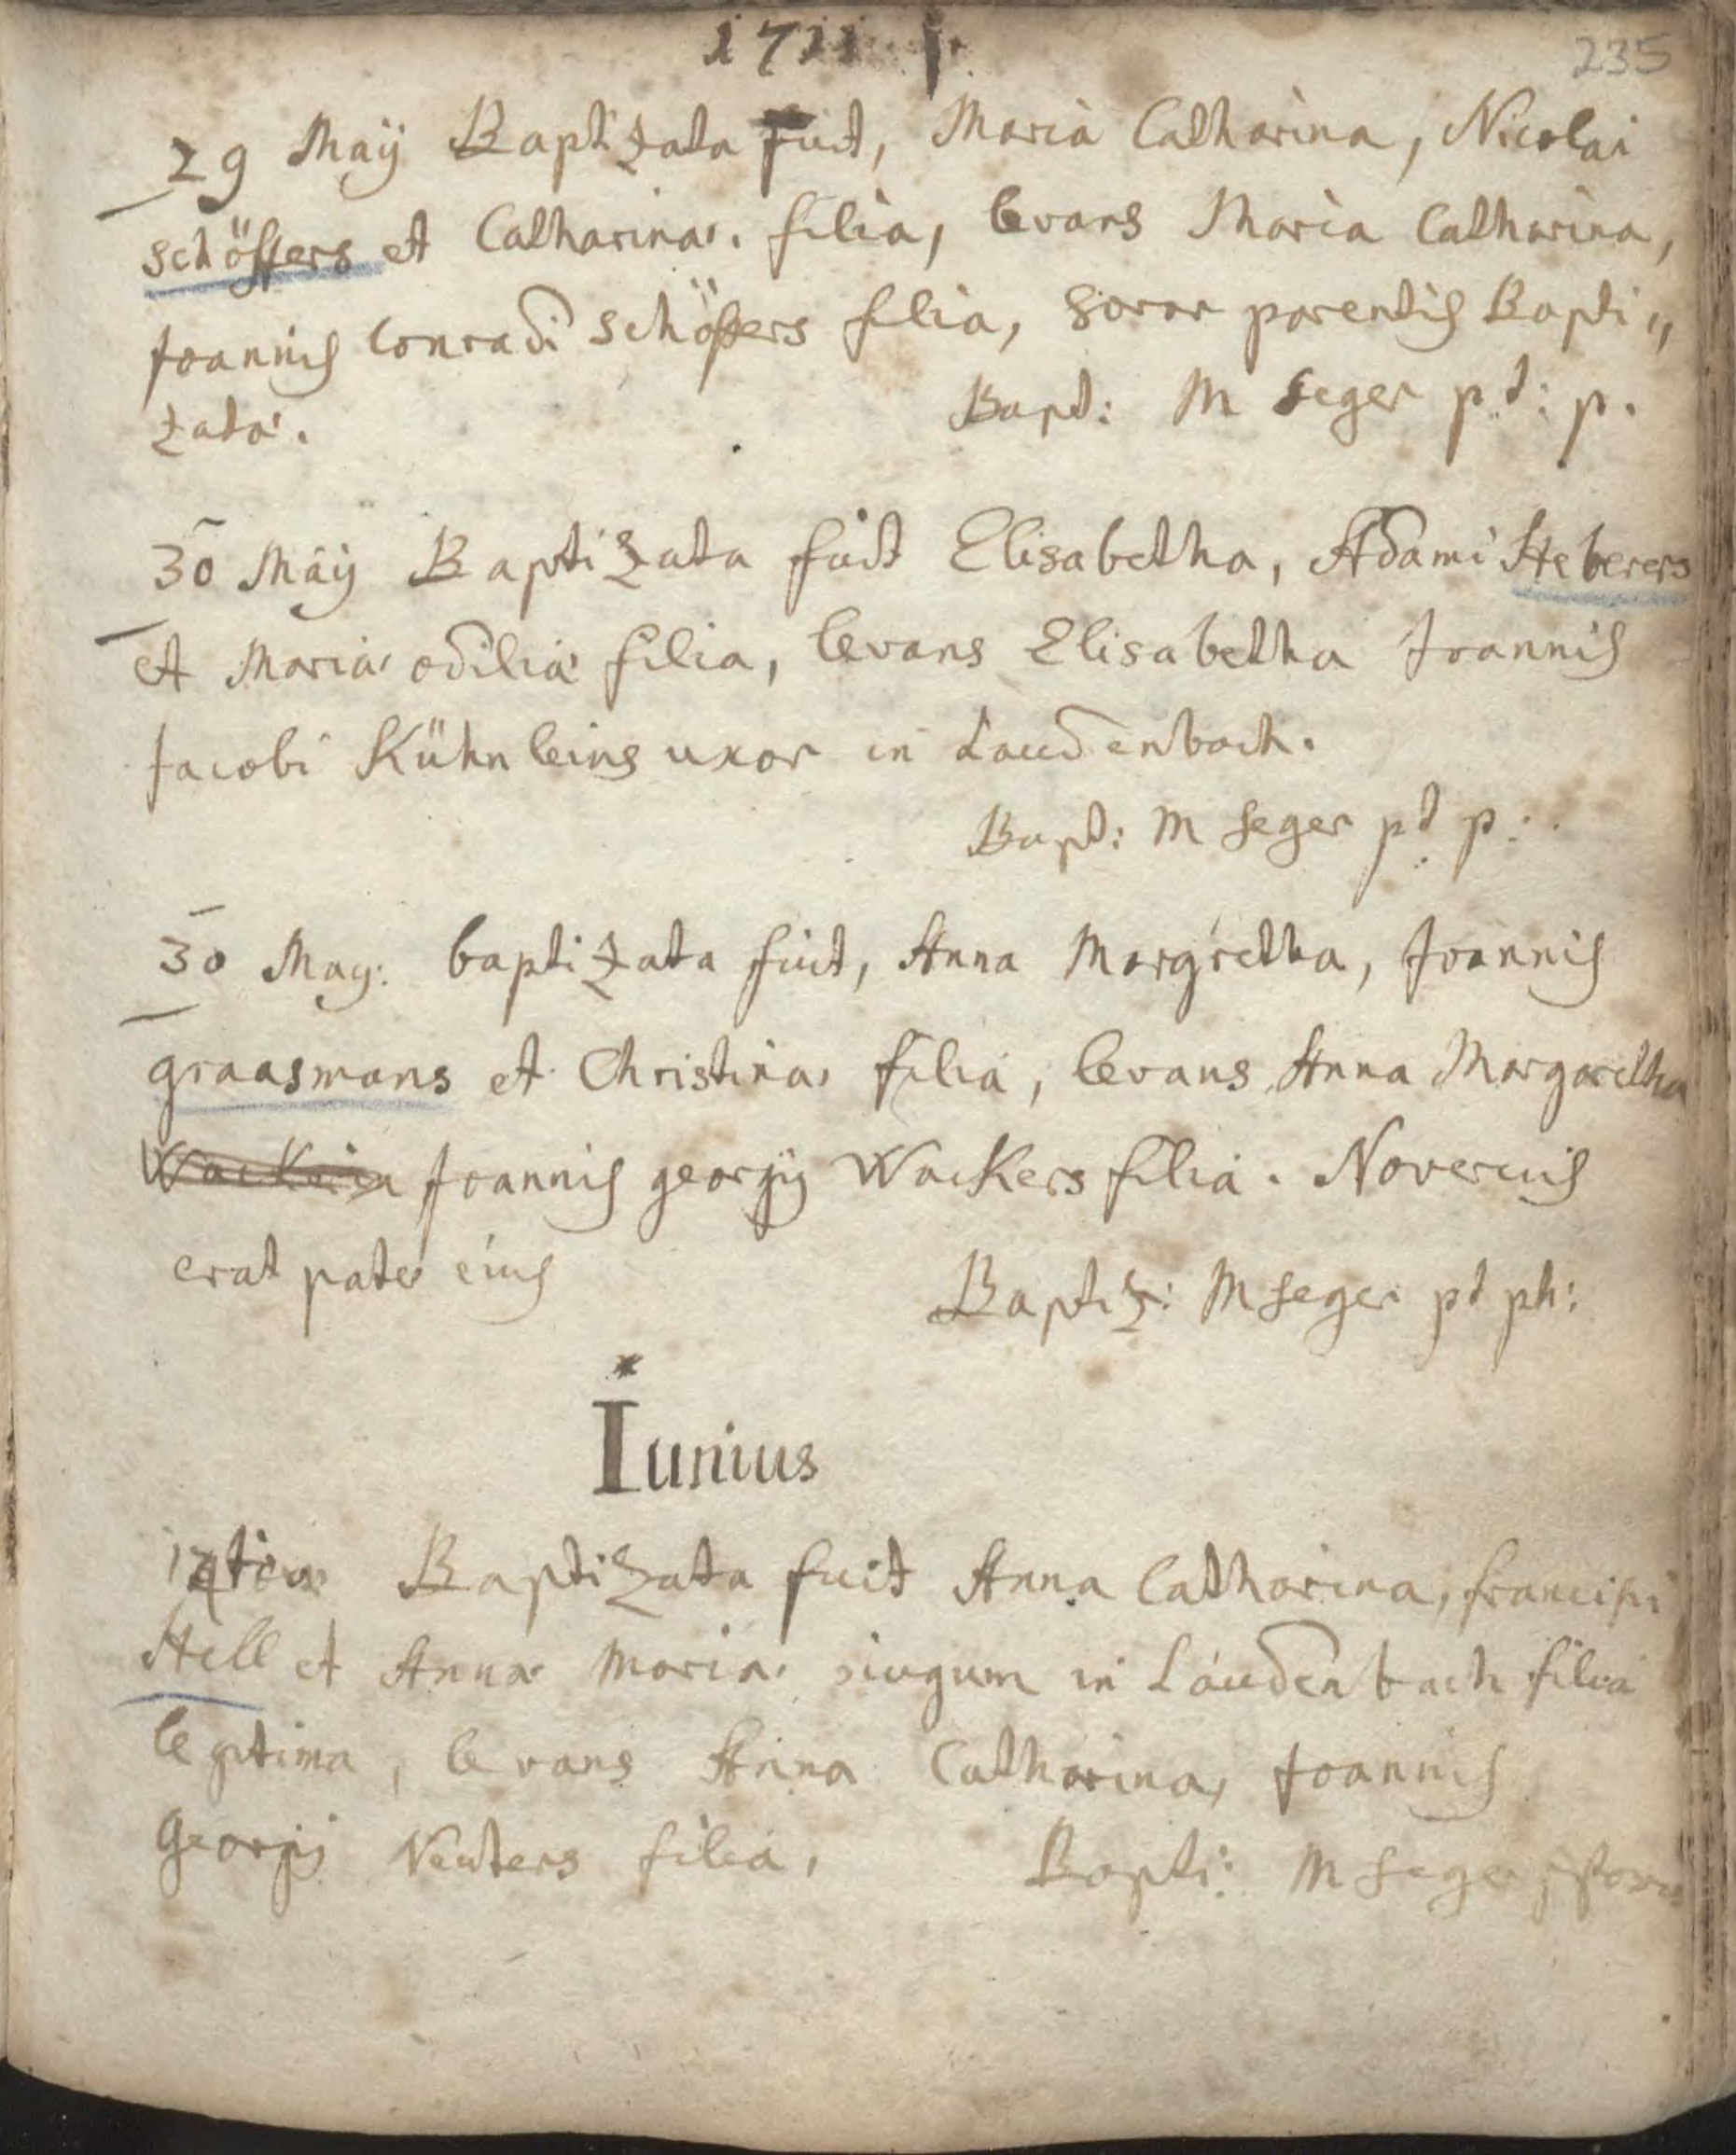 1711
235
29 Maÿ Baptizata fuit, Maria Catharina, Nicolai
schöffers et Catharinæ. filia, levans Maria Catharina,
Joannis Conradi schöffers filia, soror parentis Bapti„
zatæ.
Bapt: M Seger p.t: p.
30 Maÿ Baptizata fuit Elisabetha, Adami Heberers
et Mariæ odiliæ filia, levans Elisabetha Joannis
Jacobi Kühnleins uxor in Laudenbach.
Bapt: M Seger pt p:
30 May: baptizata fuit, Anna Margretha, Joannis
graasmans et Christinæ filia, levans Anna Margaretha
Joannis georgÿ Wackers filia. Novercus
erat pater eius
Baptiz: M Seger pt ph:
Iunius
Baptizata fuit Anna Catharina, francisci
Hell et Annæ Mariæ iugum in Laudenbach filia
legitima, levans Anna Catharina, Joannis
Georgij Neuters filia,
Bapti: M Seger